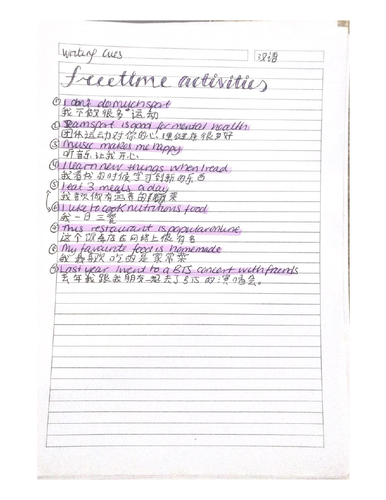 Writing Cues
汉语
freetime activities
① I don't do much sport
我不做很多运动
② Teamsport is good for mental health
团体运动对你的心理健康很多好
③ Music makes me happy
听音乐让我开心
④ I learn new things when I read
我看书的时候学习到新的东西
⑤ I eat 3 meals a day
我喜欢做有营养的菜
⑥ I like to cook nutritious food
我一日三餐
⑦ This restaurant is popular online
这个饭店在网络上很有名
⑧ My favourite food is homemade
我最喜欢吃的是家常菜
⑨ Last year I went to a BTS concert with friends
去年我跟我朋友一起去了BTS的演唱会。